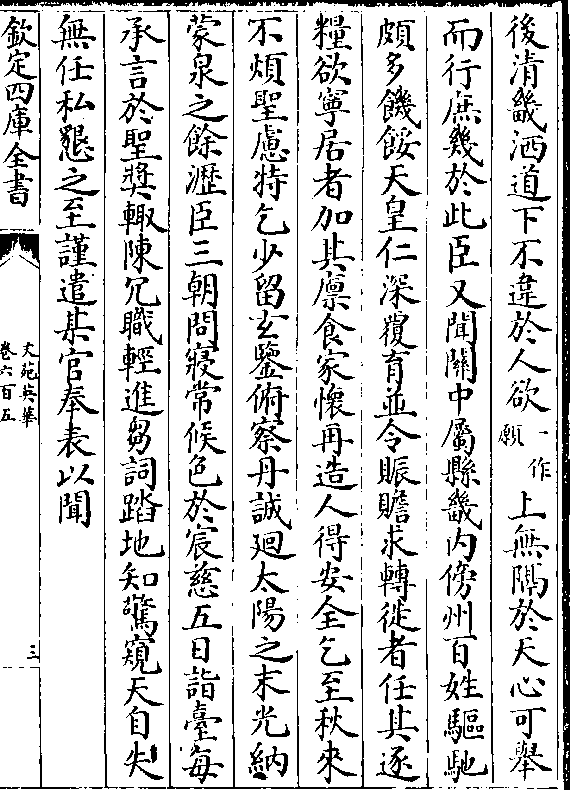 後清畿洒道下不違於人欲一作願上無隔於天心可舉
而行庶幾於此臣又聞關中屬縣畿内傍州百姓驅馳
頗多饑餒天皇仁深覆育並令賑贍求轉徙者任其逐
糧欲寧居者加其廪食家懷再造人得安全乞至秋來
不煩聖慮特乞少留玄鑒俯察丹誠廻太陽之末光納
蒙泉之餘瀝臣三朝問寢常候色於宸慈五日詣臺每
承言於聖奬輙陳冗職輕進芻詞踏地知驚窺天自失
無任私懇之至謹遣某官奉表以聞
欽定四庫全書
文苑英華
卷六百五
三